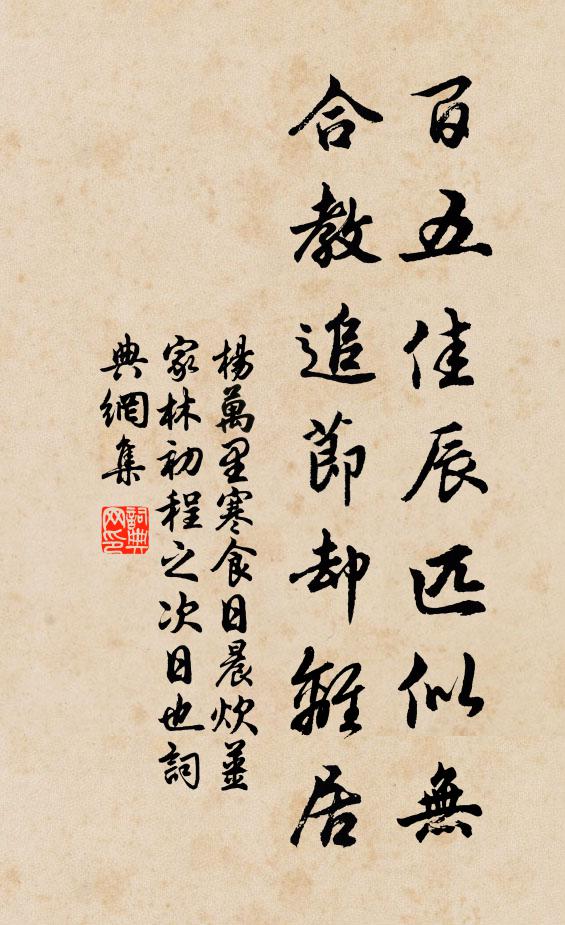 百五佳辰匹似無
合教追節却離居
楊萬里寒食日晨炊姜
家林初程之次日也詞
典網集
詞典網印